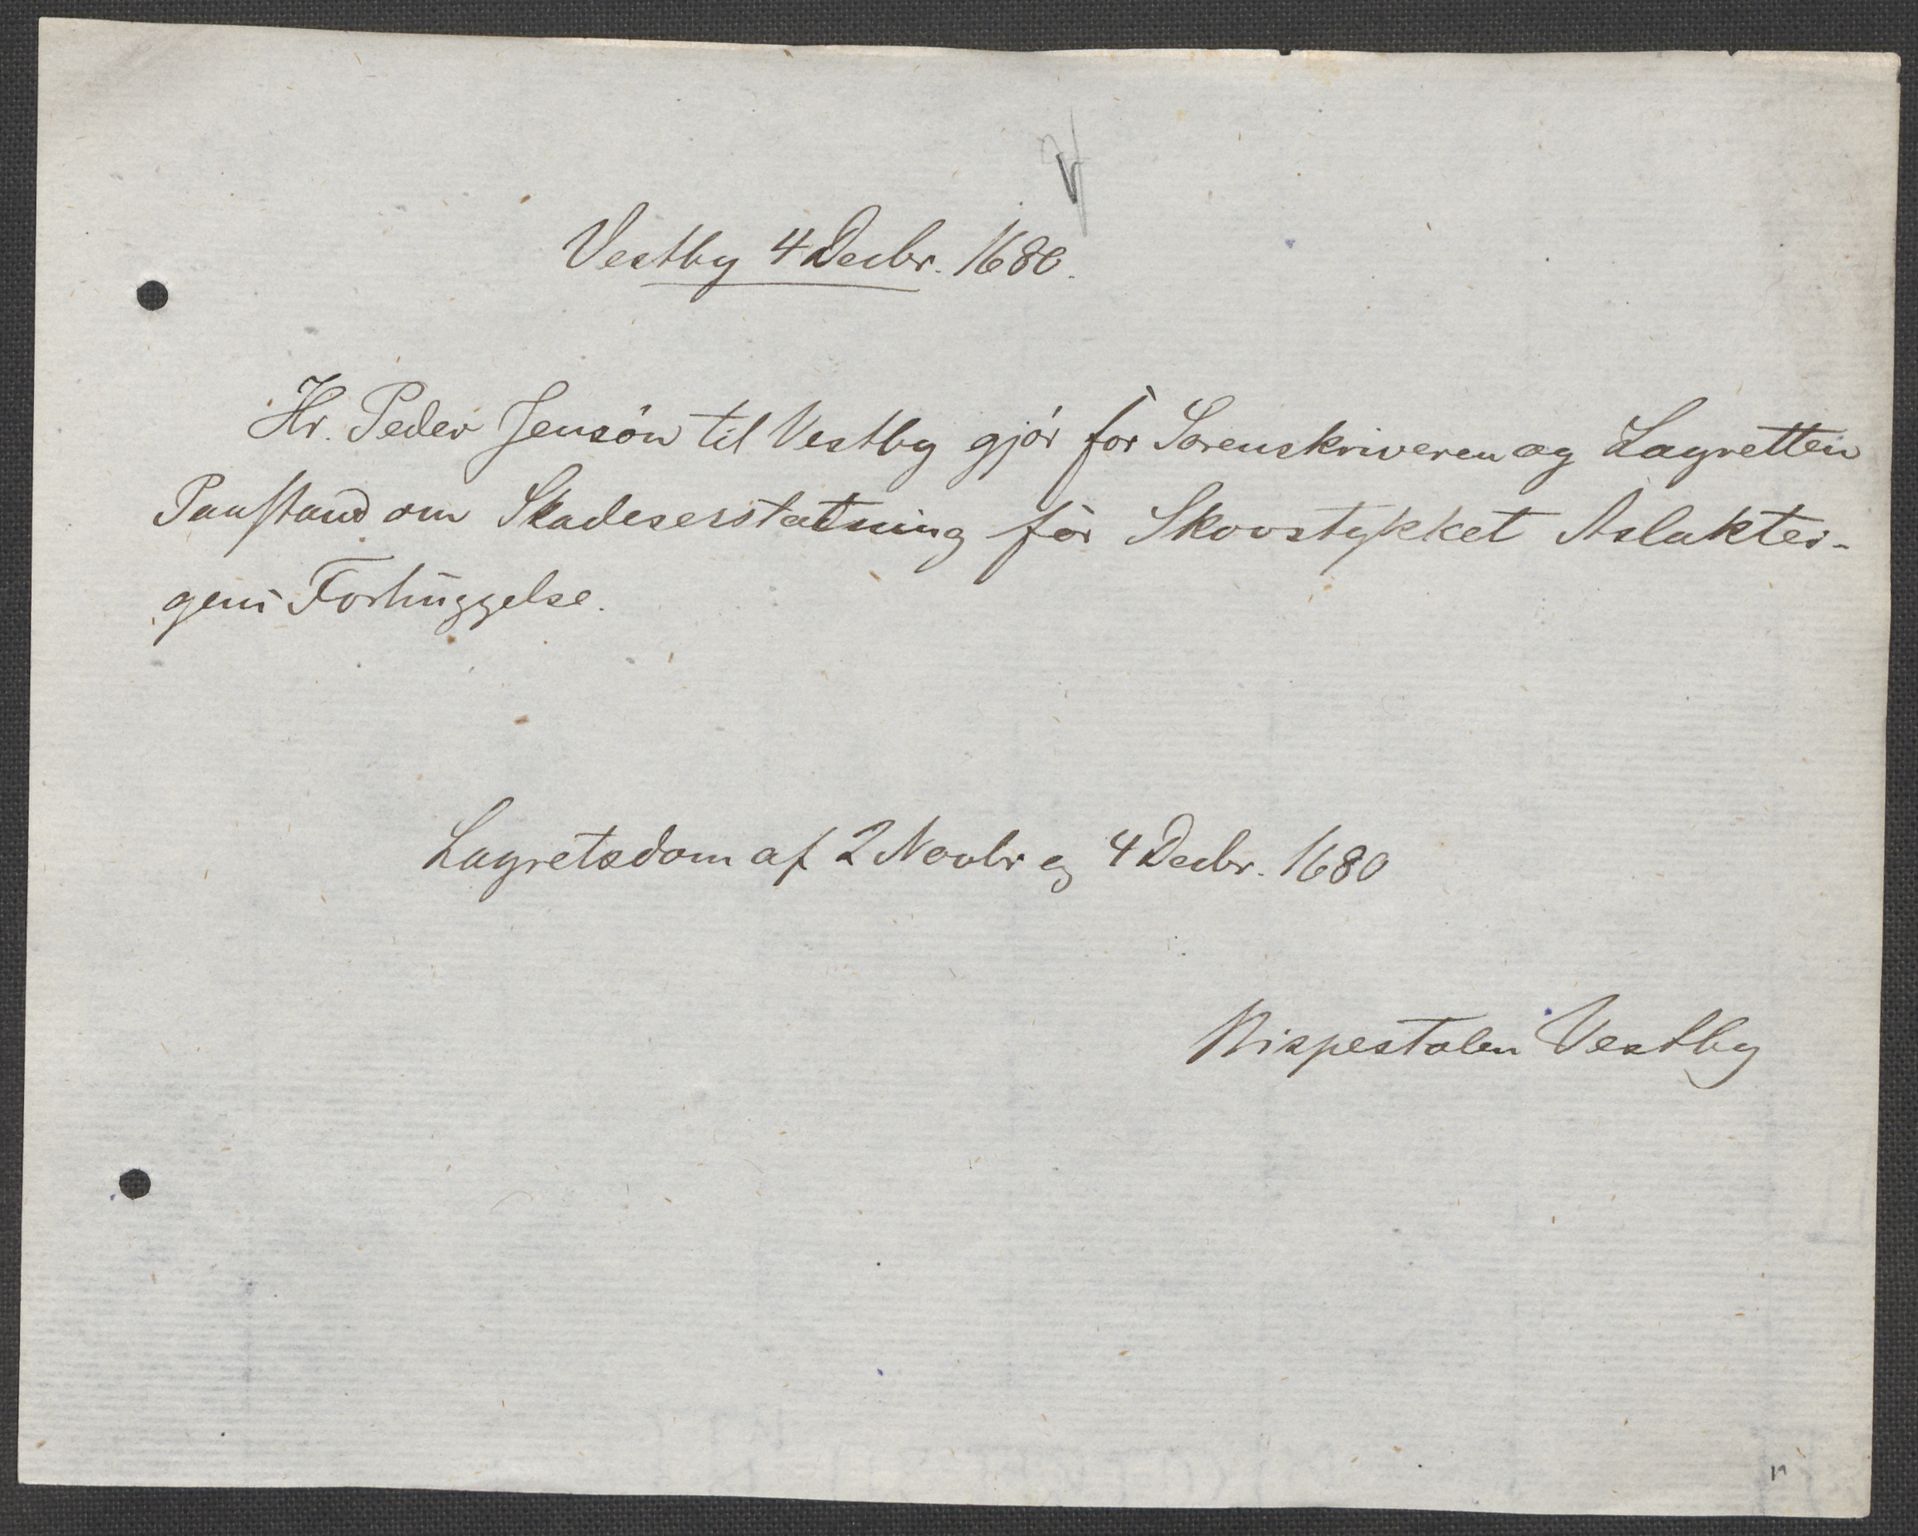 Vestby 4 Decbr. 1680.
Hr. Peder Jensön til Vestby gjör för Sorenskriveren og Lagretten
Paastand om Skadeserstatning för Skovstykket Aslakter-
gens Forhuggelse.
Lagretsdom af 2 Novbr og 4 Decbr. 1680
Bispestolen Vestby